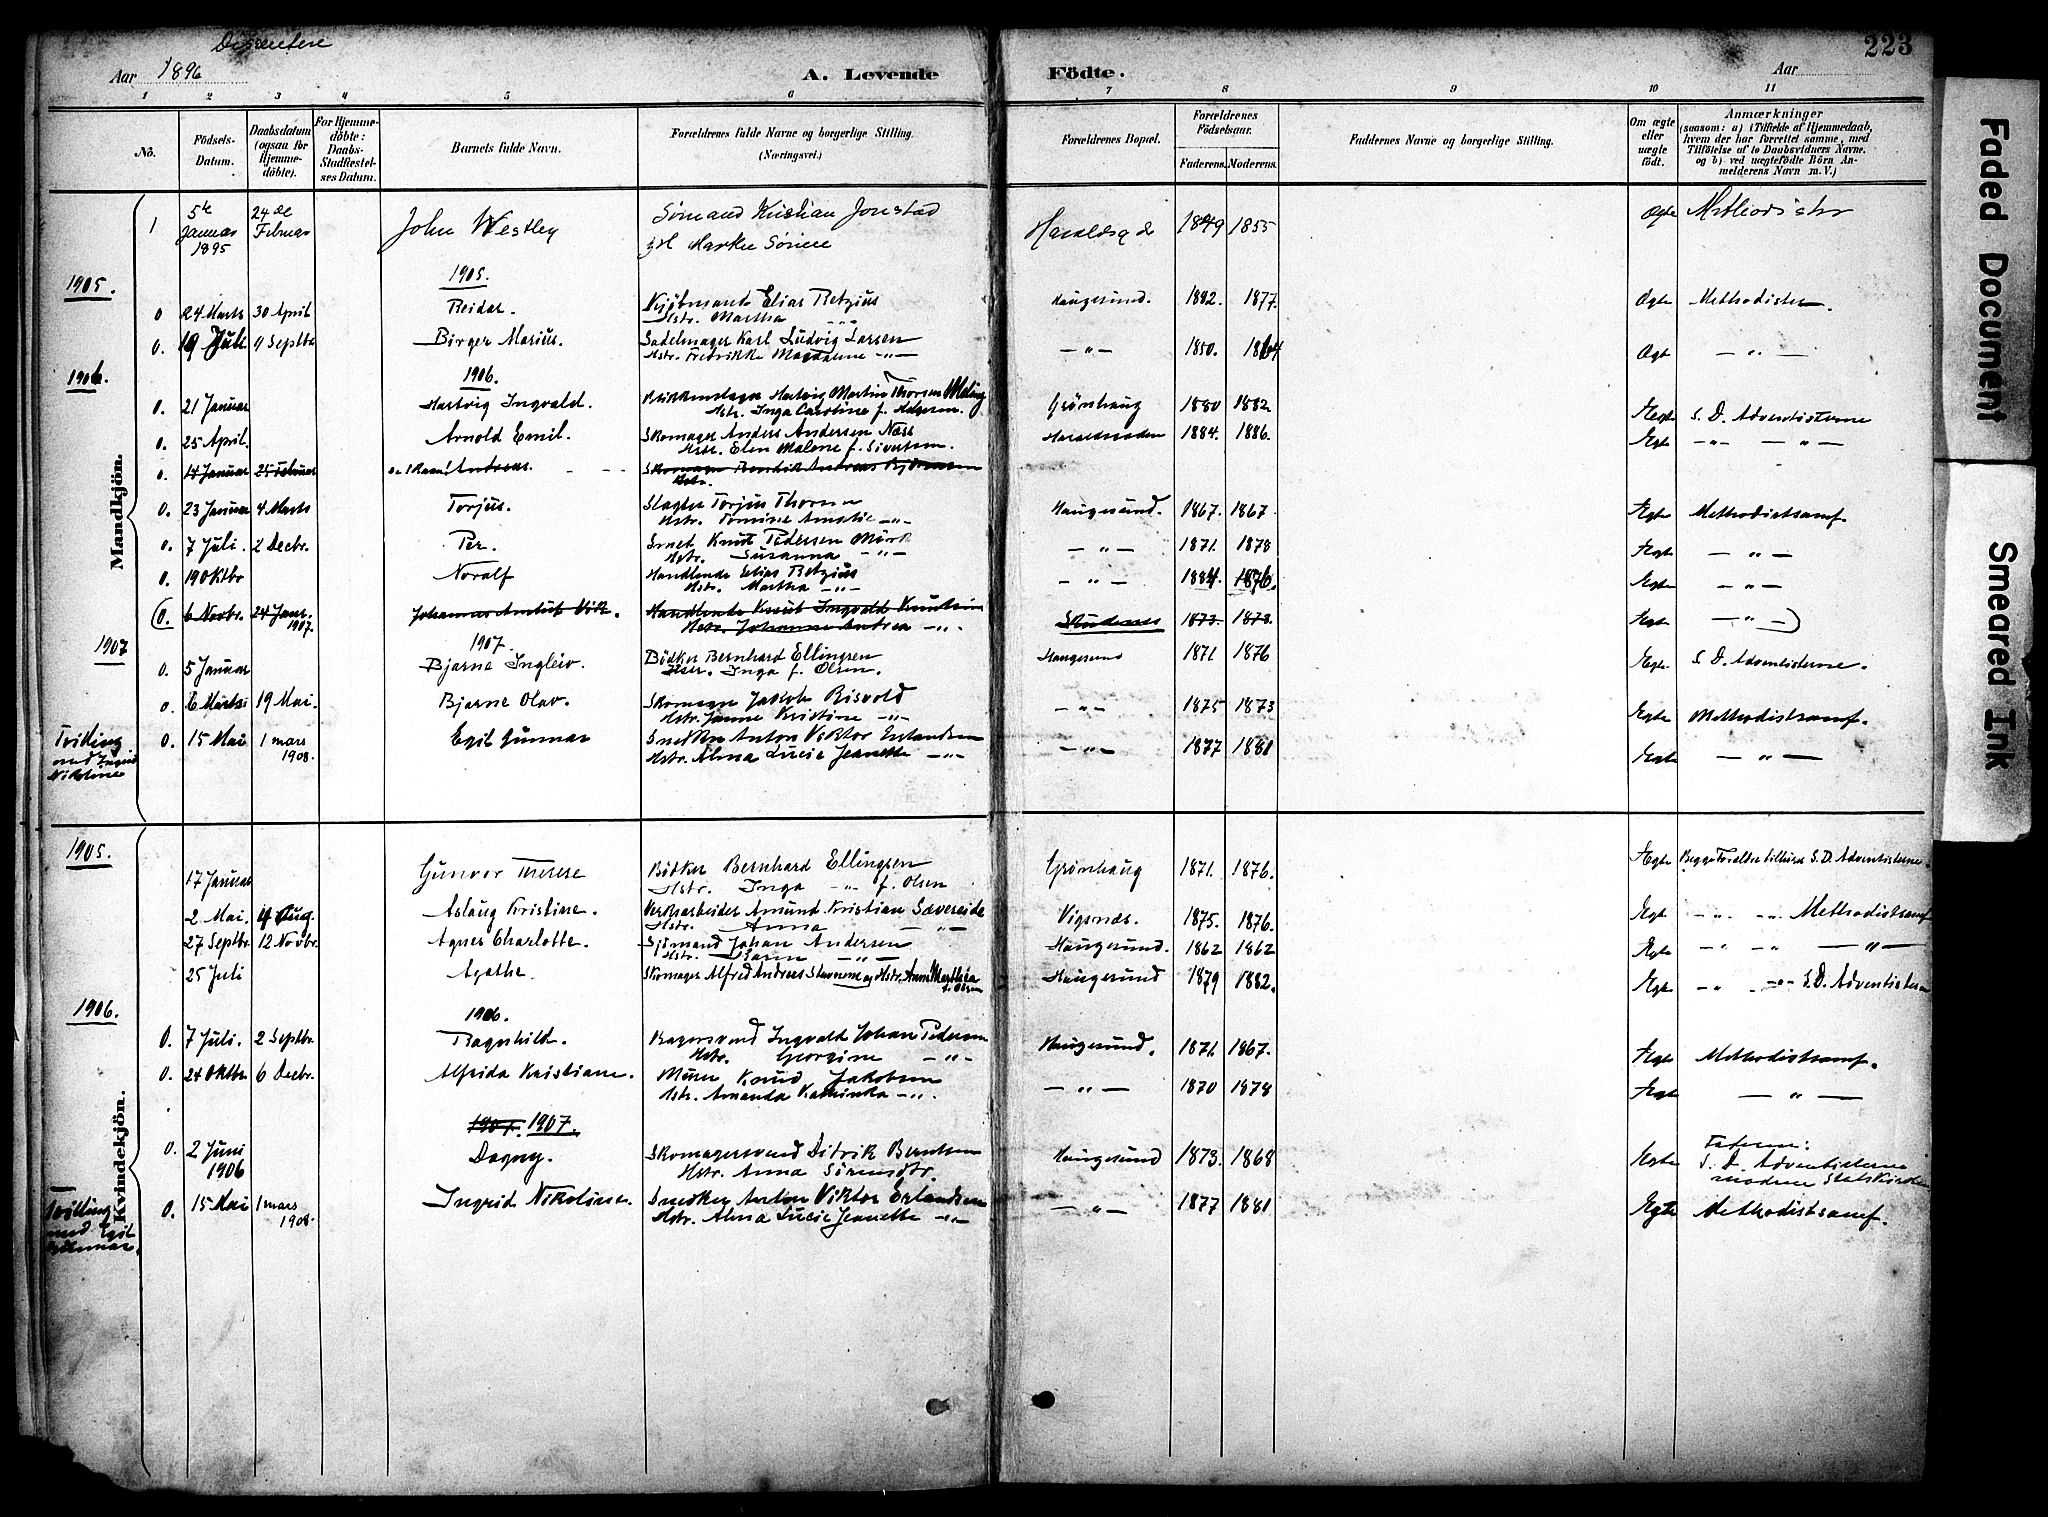 Dissentere
223
Aar 1896
A. Levende Födte.
Aar
1 2 3 4 5 6 7 8 9 10 11
No.
Födsels-Datum.
Daabsdatum (ogsaa for Hjemmedöbte).
For Hjemmedöbte: Daabs-Stadfæstelses Datum.
Barnets fulde Navn.
Forældrenes fulde Navne og borgerlige Stilling.
(Næringsvei.)
Forældrenes Bopæl.
Forældrenes Födselsaar.
Faderens. Moderens.
Faddernes Navne og borgerlige Stilling.
Om ægte eller uægte födt.
Anmærkninger
(saasom: a) i Tilfælde af Hjemmedaab, hvem der har forrettet samme, med Tilföielse af to Daabsvidners Navne, og b) ved uægtefödte Börn Anmelderens Navn m. V.)
Mandkjön.
1 5te Januar 1895 24de Februar John Westley Sömand Kristian Jonstad 1849 1855 Ægte Methodister
1905.
1905.
0 24 Marts 30 April Reidar. Kjöbmand Elias Retzius Haugesund. 1882. 1877 Ægte Methodister.
Hstr. Martha
0. 19 Juli 9 Septbr Birger Marius. Sadelmager Karl Ludvig Larsen — " — 1850. 1864 Ægte — " —
Hstr. Fredrikke Magdalene — " —
1906.
1906.
0. 21 Januar Hartvig Ingvald. Hartvig Martin Thorsen Meling Grönhaug 1880 1882. Ægte S. D. Adventisterne
Hstr. Inga Caroline f.
0. 25 April. Arnold Emil. Skomager Anders Andersen Næss 1884. 1886. Ægte — " — — " —
Hstr. Elen Malene f. Sivertsen.
0. 14 Januar 25 Februar Andreas. Skomager Bendik Andreas
Hstr.
0. 23 Januar 4 Marts Torjus. Slagter Torjus Thorsen Haugesund. 1867. 1867. Ægte Methodistsamf.
Hstr. Tomine Amalie — " —
0. 7 Juli. 2 Decbr. Per. Smed Knut Pedersen Mörk — " — 1871. 1878 Ægte — " —
Hstr. Susanna — " —
0. 19 Oktbr Noralf Handlende Elias Retzius — " — 1884. 1876. Ægte — " —
Hstr. Martha — " —
(0. 6 Novbr. 24 Janr. 1907. Johannes Vik. Handlende Knut Ingvald Knutsen Skudenes 1873. 1873. Ægte — " —)
Hstr. Johanne Andrea — " —
1907
1907.
0. 5 Januar Bjarne Ingleiv. Bödker Bernhard Ellingsen Haugesund 1871 1876 Ægte S. D. Adventisterne.
Hstr. Inga f. Olsen.
0. 6 Marts 19 Mai. Bjarne Olav. Skomager Jakob Risvold — " — 1875 1873 Ægte Methodistsamf.
Hstr. Janne Kristine — " —
Tvilling med Ingrid Nikoline 0. 15 Mai 1 mars 1908. Egil Gunnar Snedker Anton Viktor Erlandsen — " — 1877 1881 Ægte — " —
Hstr. Alma Lucie Jeanette — " —
Kvindekjön.
1905.
17 Januar Gunvor Therese Bödker Bernhard Ellingsen Grönhaug 1871. 1876. Ægte Begge Forældre tilhöre S. D. Adventisterne.
Hstr. Inga — " — f. Olsen
2 Mai. 4 Aug. Aslaug Kristine. Verksarbeider Amund Kristian Sævereide Vigsnæs. 1875. 1876. Ægte — " — " — Methodistsamf
Hstr. Anna — " —
27 Septbr 12 Novbr. Agnes Charlotte. Sjömand Johan Andersen Haugesund. 1862 1862 Ægte — " — " — — " —
Hstr. Karen — " —
25 Juli Agathe. Skomager Alfred Andreas Stavnem og Hstr. Anne Marthea f. Olsen Haugesund 1879 1882. Ægte — " — " — S.D. Adventisterne
1906.
1906.
0. 7 Juli. 2 Septbr Ragnhild. Bagersvend Ingvald Johan Pedersen Haugesund. 1871. 1867. Ægte Methodistsamf.
Hstr. Georgine — " —
0. 24 Oktbr 6 Decbr. Alfrida Kristiane. Murer Knud Jakobsen — " — 1870 1878 Ægte — " —
Hstr. Amanda Kathinka — " —
1907. 1907.
0. 2 Juni 1906 Dagny. Skomagersvend Didrik Berntsen Haugesund 1873. 1868 Ægte Faderen: S. D. Adventisterne moderen Statskirken
Hstr. Anna Sörensdtr.
Tvilling med Egil Gunnar. 0. 15 Mai 1 mars 1908. Ingrid Nikoline. Snedker Anton Viktor Erlandsen — " — 1877 1881 Ægte Methodistsamf.
Hstr. Alma Lucie Jeanette — " —
Faded Document
Smeared Ink